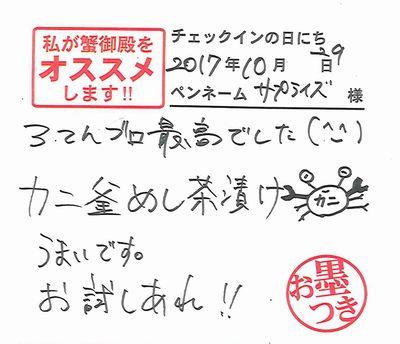 私が蟹御殿を
オススメ
します!!
チェックインの日にち
2017年10月29日
ペンネーム サプライズ 様
ろてんブロ最高でした(^^)
カニ釜めし茶漬け
カニ
うまいです。
お試しあれ!!
お墨つき